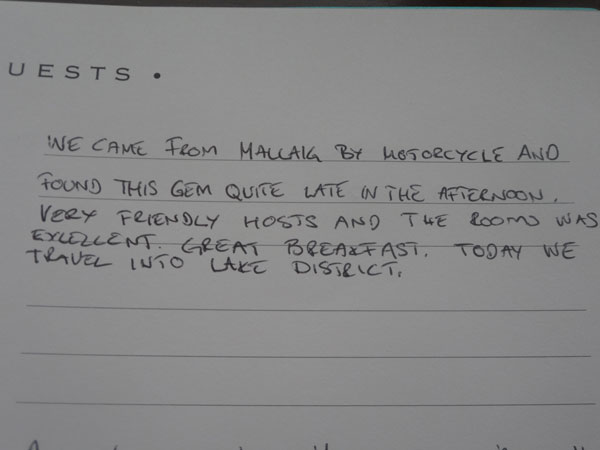 UESTS •
WE CAME FROM MALLAIG BY MOTORCYCLE AND
FOUND THIS GEM QUITE LATE IN THE AFTERNOON.
VERY FRIENDLY HOSTS AND THE ROOMS WAS
EXLELLENT. GREAT BREAKFAST. TODAY WE
TRAVEL INTO LAKE DISTRICT.